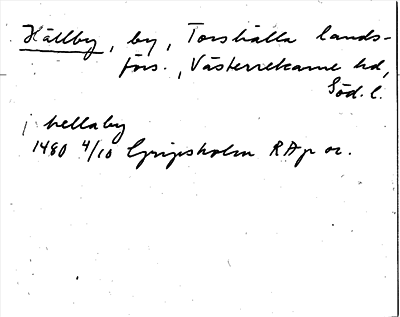 Hällby, by, Torshälla lands-
förs., Västerrekarne hd,
Söd. l.
i hellaby
1480 4/10 Gripsholm RAp or.